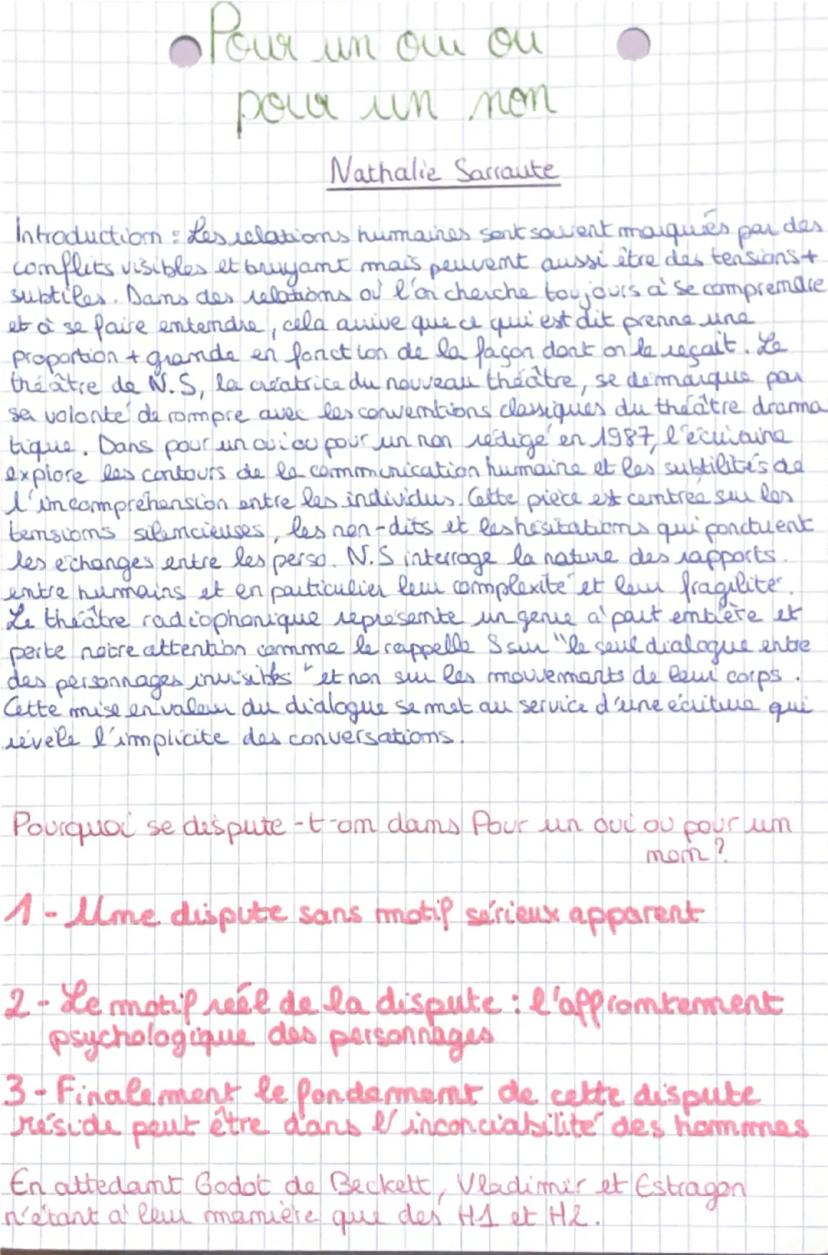 Pour un oui ou
pour un non
Nathalie Sarraute
Introduction : Les relations humaines sont souvent marquées par des
conflits visibles et bruyant mais peuvent aussi être des tensions +
subtiles. Dans des relations où l'on cherche toujours à se comprendre
et à se faire entendre, cela arrive que ce qui est dit prenne une
proportion + grande en fonction de la façon dont on le reçait. Le
théâtre de N.S, la créatrice du nouveau théâtre, se démarque par
sa volonté de rompre avec les conventions classiques du théâtre drama
tique. Dans pour un oui ou pour un non rédigé en 1987, l'écrivaine
explore les contours de la communication humaine et les subtilités de
l'incompréhension entre les individus. Cette pièce est centrée sur les
tensions silencieuses, les non-dits et les hésitations qui ponctuent
les échanges entre les perso. N.S interroge la nature des rapports
entre humains et en particulier leur complexité et leur fragilité.
Le théâtre radiophonique représente un genre à part entière et
porte notre attention comme le rappelle S sur "le seul dialogue entre
des personnages invisibles" et non sur les mouvements de leur corps.
Cette mise en valeur du dialogue se met au service d'une écriture qui
révèle l'implicite des conversations.
Pourquoi se dispute-t-on dans Pour un oui ou pour un
non ?
1 - Une dispute sans motif sérieux apparent
2 - Le motif réel de la dispute : l'affrontement
psychologique des personnages
3 - Finalement le fondement de cette dispute
réside peut être dans l'inconciabilité des hommes
En attedant Godot de Beckett, Vladimir et Estragon
n'étant à leur manière que des H1 et H2.